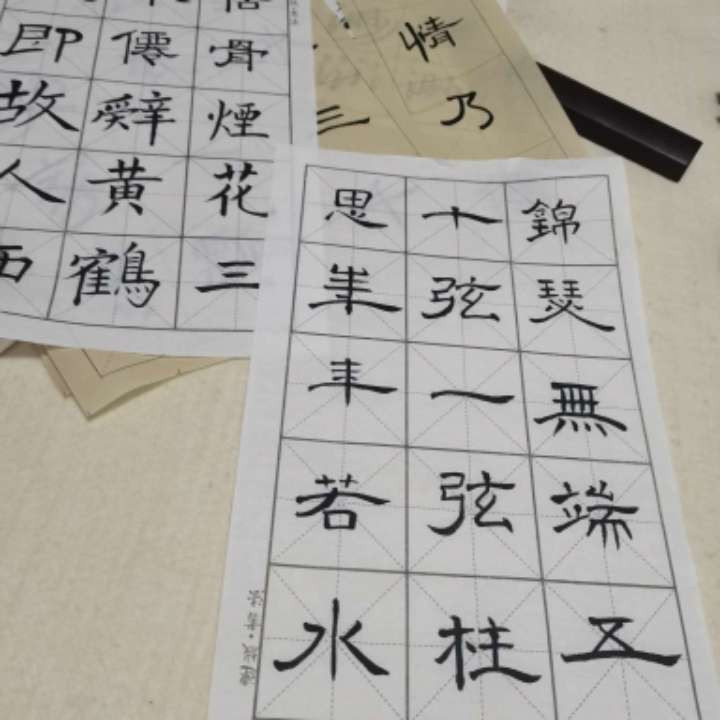 錦瑟無端五
十弦一弦柱
思華年若水
骨煙花三
辭黃鶴
即故人西
情乃
三